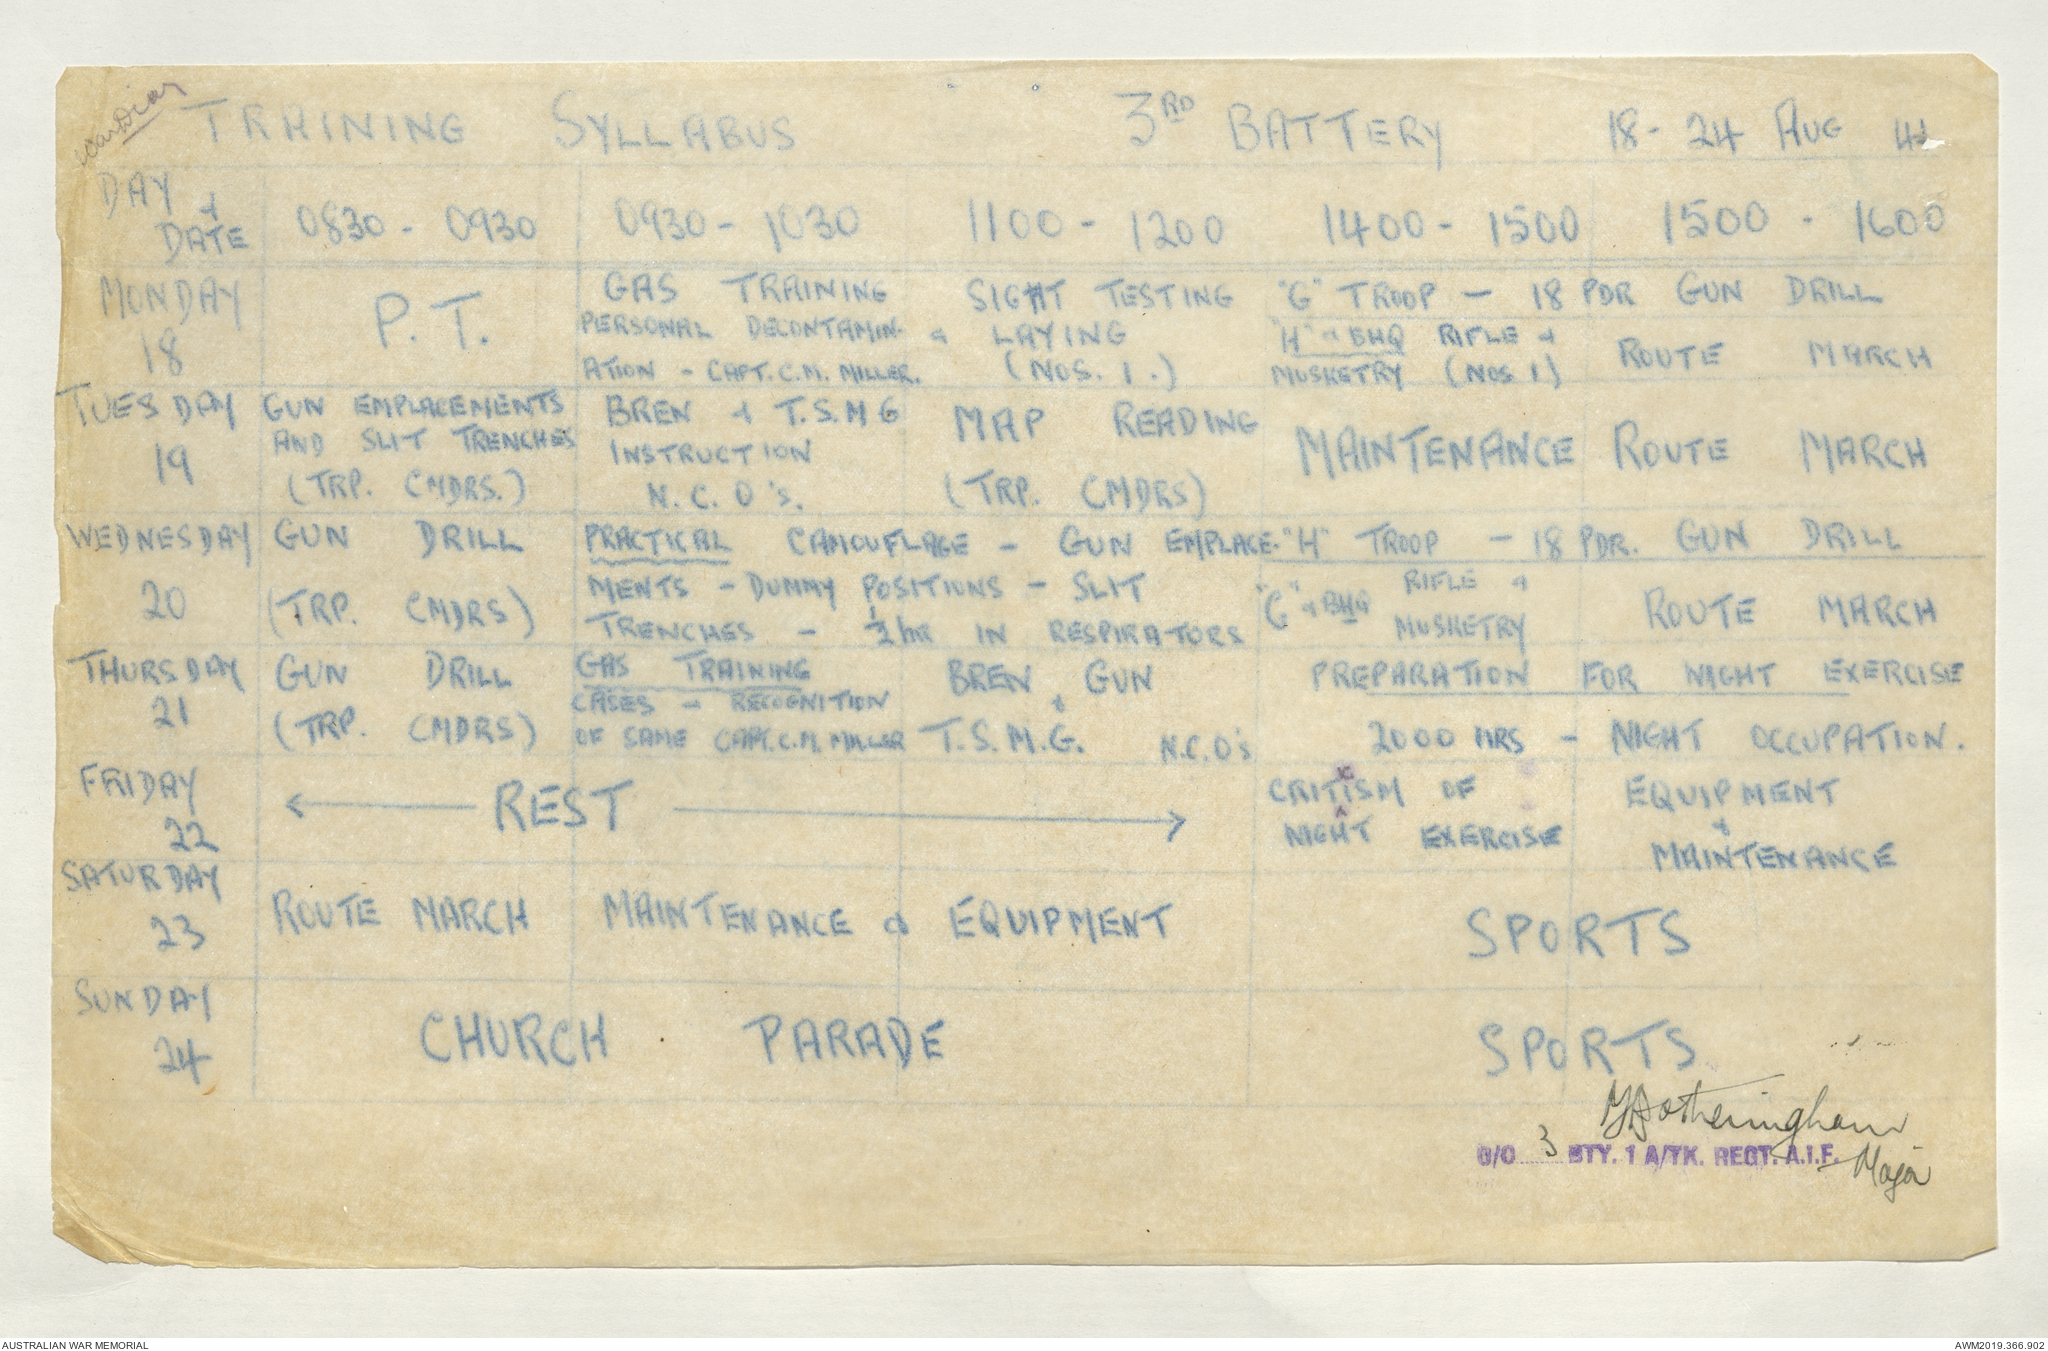 War Diary
TRAINING SYLLABUS 3RD BATTERY 18 - 24 AUG 41
DAY & DATE 0830 - 0930 0930 - 1030 1100 - 1200 1400 - 1500 1500 - 1600
MONDAY 18
P.T.
GAS TRAINING
PERSONAL DECONTAMIN-
ATION - CAPT. C.M. MILLER.
SIGHT TESTING
& LAYING
(NOS. 1.)
"G" TROOP - 18 PDR GUN DRILL
"H" & BHQ RIFLE &
MUSKETRY (NOS 1)
ROUTE MARCH
TUESDAY 19
GUN EMPLACEMENTS
AND SLIT TRENCHES
(TRP. CMDRS.)
BREN & T.S.M G
INSTRUCTION
N.C.O's.
MAP READING
(TRP. CMDRS)
MAINTENANCE
ROUTE MARCH
WEDNESDAY 20
GUN DRILL
(TRP. CMDRS)
PRACTICAL CAMOUFLAGE - GUN EMPLACE-
MENTS - DUMMY POSITIONS - SLIT
TRENCHES - 1/2 hR IN RESPIRATORS
"H" TROOP - 18 PDR. GUN DRILL
"G" & BHQ RIFLE &
MUSKETRY
ROUTE MARCH
THURSDAY 21
GUN DRILL
(TRP. CMDRS)
GAS TRAINING
CASES & RECOGNITION
OF SAME CAPT. C.M. MILLER
BREN GUN
&
T.S.M.G. N.C.O's
PREPARATION FOR NIGHT EXERCISE
2000 HRS - NIGHT OCCUPATION.
FRIDAY 22
REST
CRITICISM OF
NIGHT EXERCISE
EQUIPMENT
&
MAINTENANCE
SATURDAY 23
ROUTE MARCH
MAINTENANCE & EQUIPMENT
SPORTS
SUNDAY 24
CHURCH PARADE
SPORTS
Fotheringham
O/C 3 BTY. 1 A/TK. REGT. A.I.F. Major
AUSTRALIAN WAR MEMORIAL
AWM2019.366.902